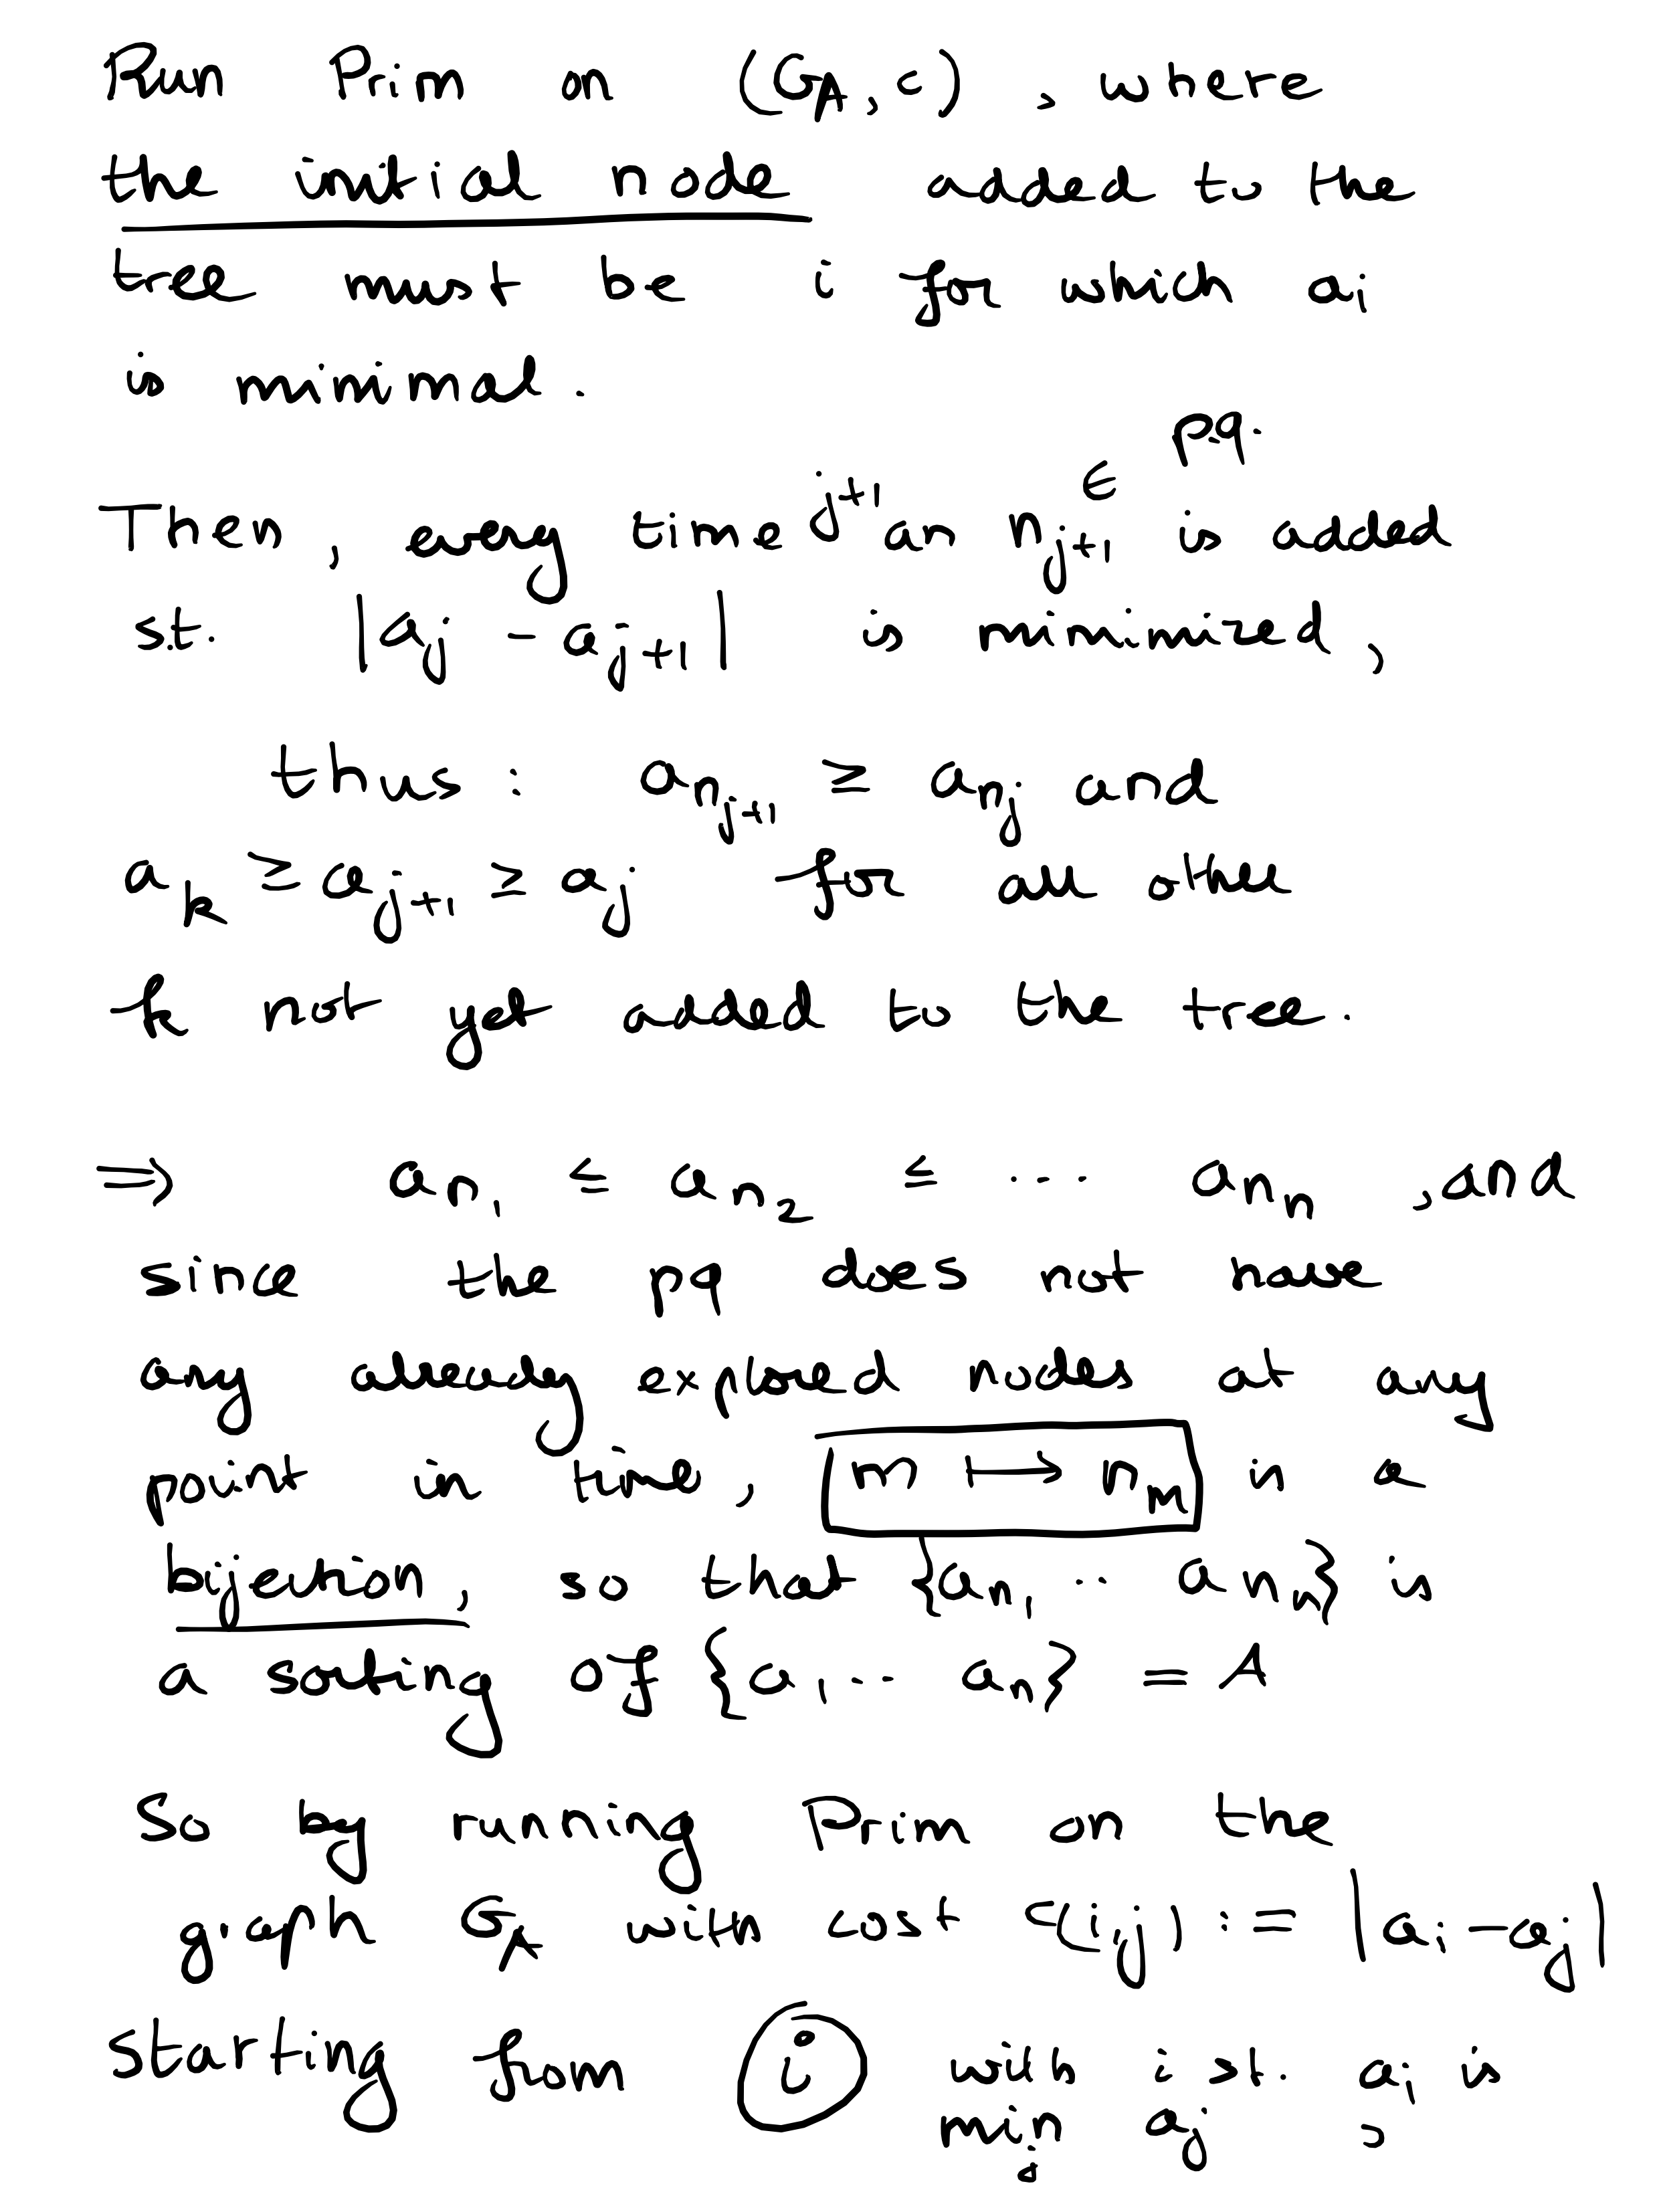 Run Prim on (G_A, c), where
the initial node added to the
tree must be i for which a_i
is minimal.
Then, every time j+1 an n_{j+1} ∈ p.q. is added
st. |a_j - a_{j+1}| is minimized,
thus: a_{n_{j+1}} ≥ a_{n_j} and
a_k ≥ a_{j+1} ≥ a_j for all other
k not yet added to the tree.
⇒ a_{n_1} ≤ a_{n_2} ≤ ... a_{n_n}, and
since the pq does not have
any already explored nodes at any
point in time, m ↦ n_m is a
bijection, so that {a_{n_1} .. a_{n_n}} is
a sorting of {a_1 .. a_n} = A
So by running Prim on the
graph G_A with cost c(i,j) := |a_i - a_j|
starting from i with i st. a_i is
min_j a_j,